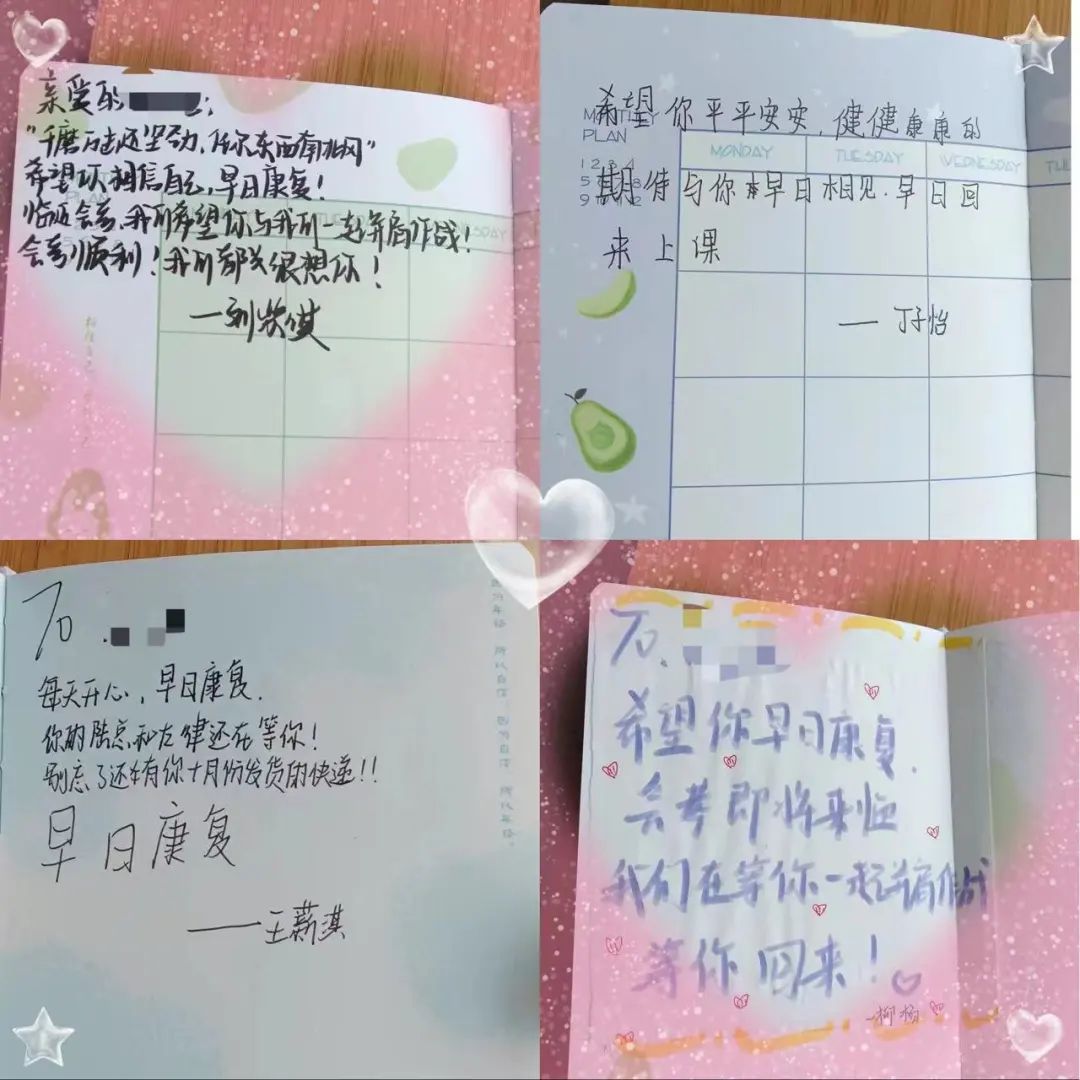 亲爱的
"千磨万击还坚劲,任尔东西南北风"
希望你相信自己,早日康复!
临近会考,我们希望你与我们一起并肩作战!
会考顺利!我们都很想你!
希望你平平安安,健健康康的
MONTHLY
PLAN
MONDAY
TUESDAY
WEDNESDAY
期待与你早日相见.早日回
来上课
——丁子怡
To.
每天开心,早日康复.
你的陆总和左律还在等你!
别忘了还有你十月份发货的快递!!
早日康复
——王薪淇
To.
希望你早日康复.
会考即将来临
我们在等你一起并肩作战
等你回来!
-柳杨